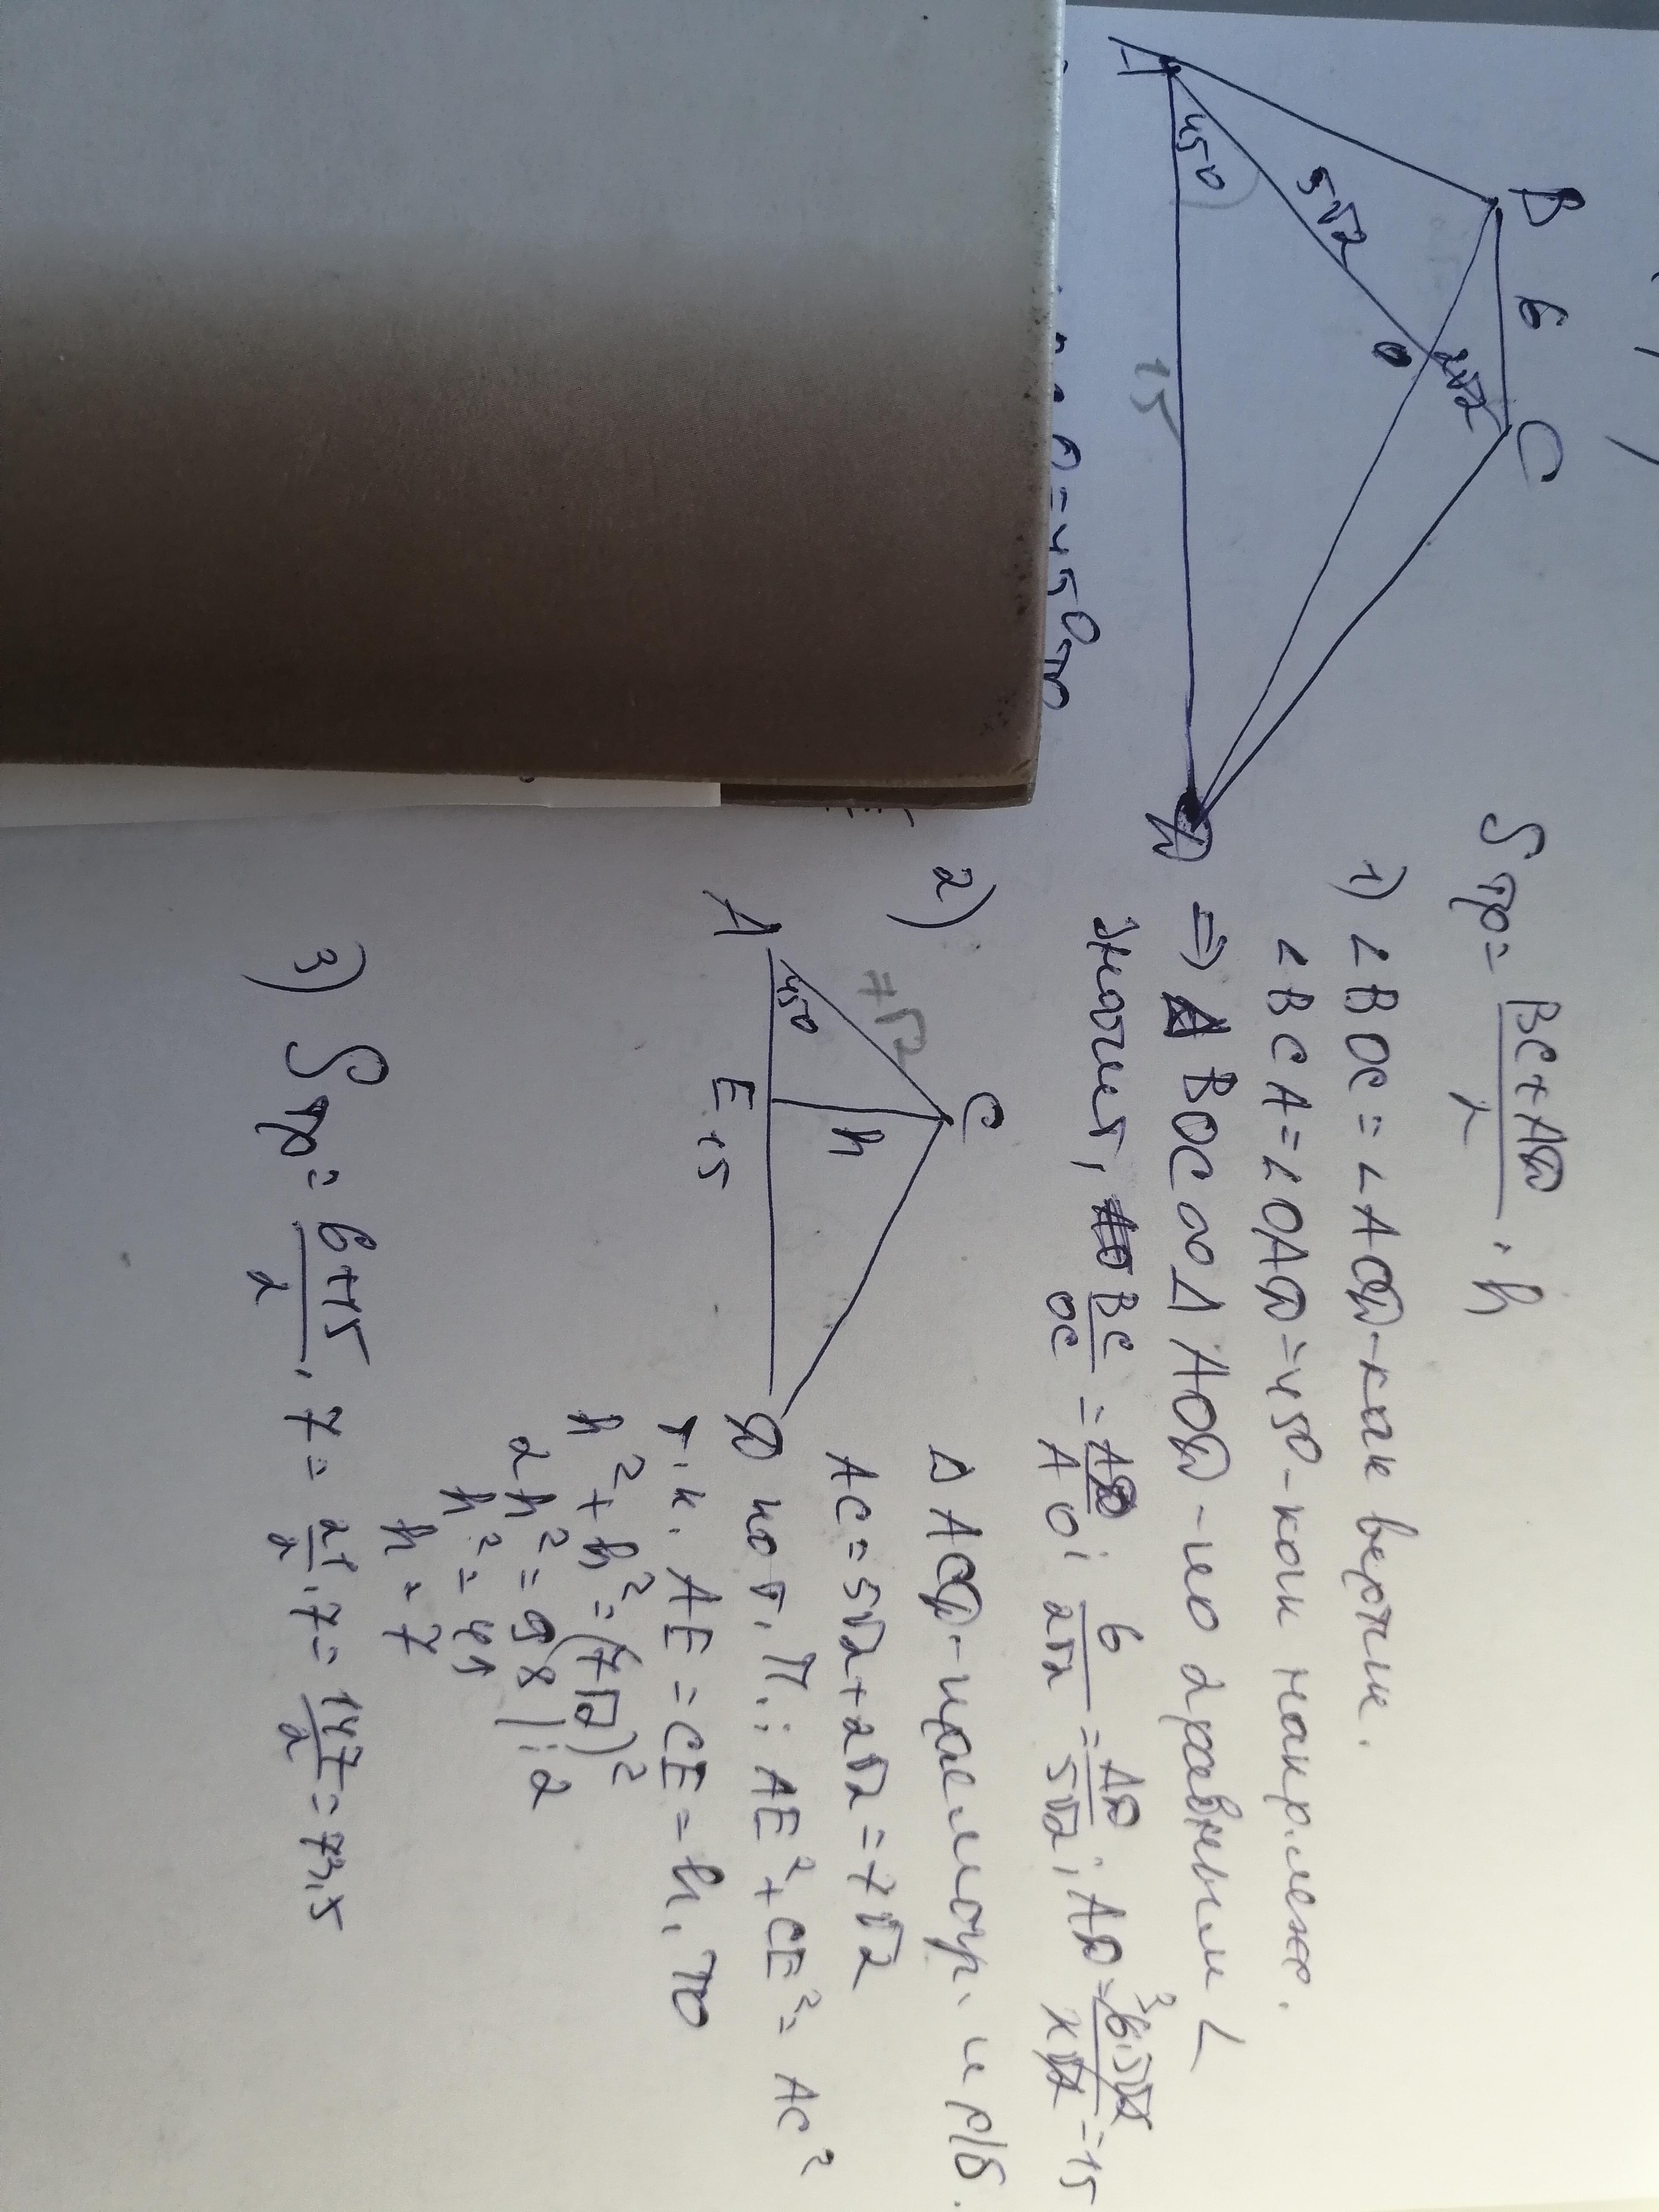 B 6 C
5√2
2√2
O
45°
A
15
D
Sтр = (BC + AD)/2 · h
1) ∠BOC = ∠AOD - как вертик.
∠BCA = ∠OAD = 45° - как накр. леж.
⇒ ΔBOC ∞ ΔAOD - по 2 равным ∠
значит, BC/OC = AD/AO; 6/2√2 = AD/5√2; AD = 6·5√2/2√2 = 15
= 45°, то
2)
C
7√2
h
45°
A
E 15
D
ΔACD - прямоуг. и р/б.
AC = 5√2 + 2√2 = 7√2
по т. П.: AE² + CE² = AC²
т.к. AE = CE = h, то
h² + h² = (7√2)²
2h² = 98 | :2
h² = 49
h = 7
3) Sтр = (6+15)/2 · 7 = 21/2 · 7 = 147/2 = 73,5